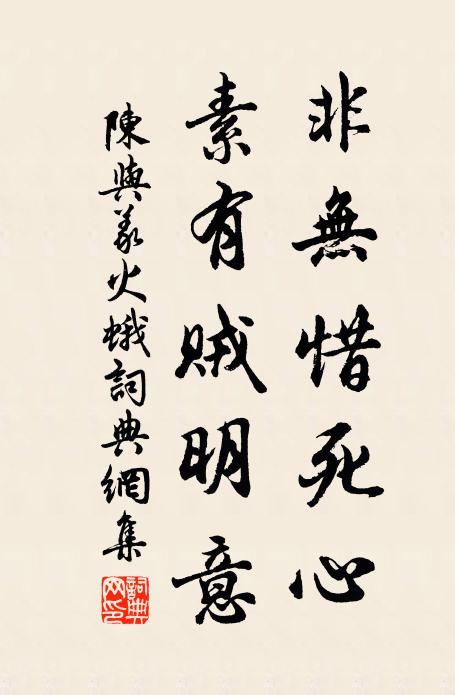 非無惜死心
素有賊明意
陳與義火蛾詞典網集
詞典網印